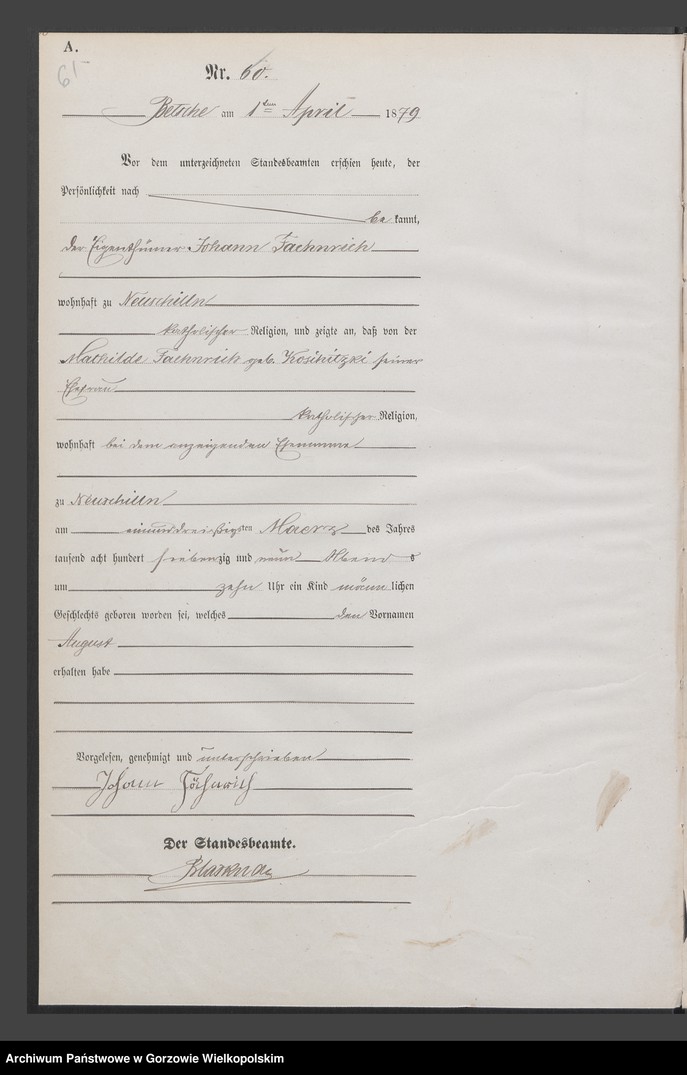 A.
61
Nr. 60.
Betsche am 1ten April 1879
Vor dem unterzeichneten Standesbeamten erschien heute, der
Persönlichkeit nach
be kannt,
der Eigenthümer Johann Faehnrich
wohnhaft zu Neuschilln
katholischer Religion, und zeigte an, daß von der
Mathilde Faehnrich geb. Kositzki seiner
Ehefrau
katholischer Religion,
wohnhaft bei dem anzeigenden Ehemanne
zu Neuschilln
am einunddreißigsten Maerz des Jahres
tausend acht hundert siebenzig und neun Abend s
um zehn Uhr ein Kind männ lichen
Geschlechts geboren worden sei, welches den Vornamen
August
erhalten habe
Vorgelesen, genehmigt und unterschrieben
Johann Fähnrich
Der Standesbeamte.
Archiwum Państwowe w Gorzowie Wielkopolskim